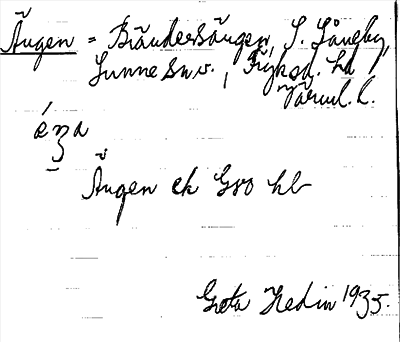 Ängen = Brändersängen, S. Låneby,
Sunne sn v., Fryksd. hd,
Värml. l.
Ängen ek Gso hb
Greta Hedin 1935.